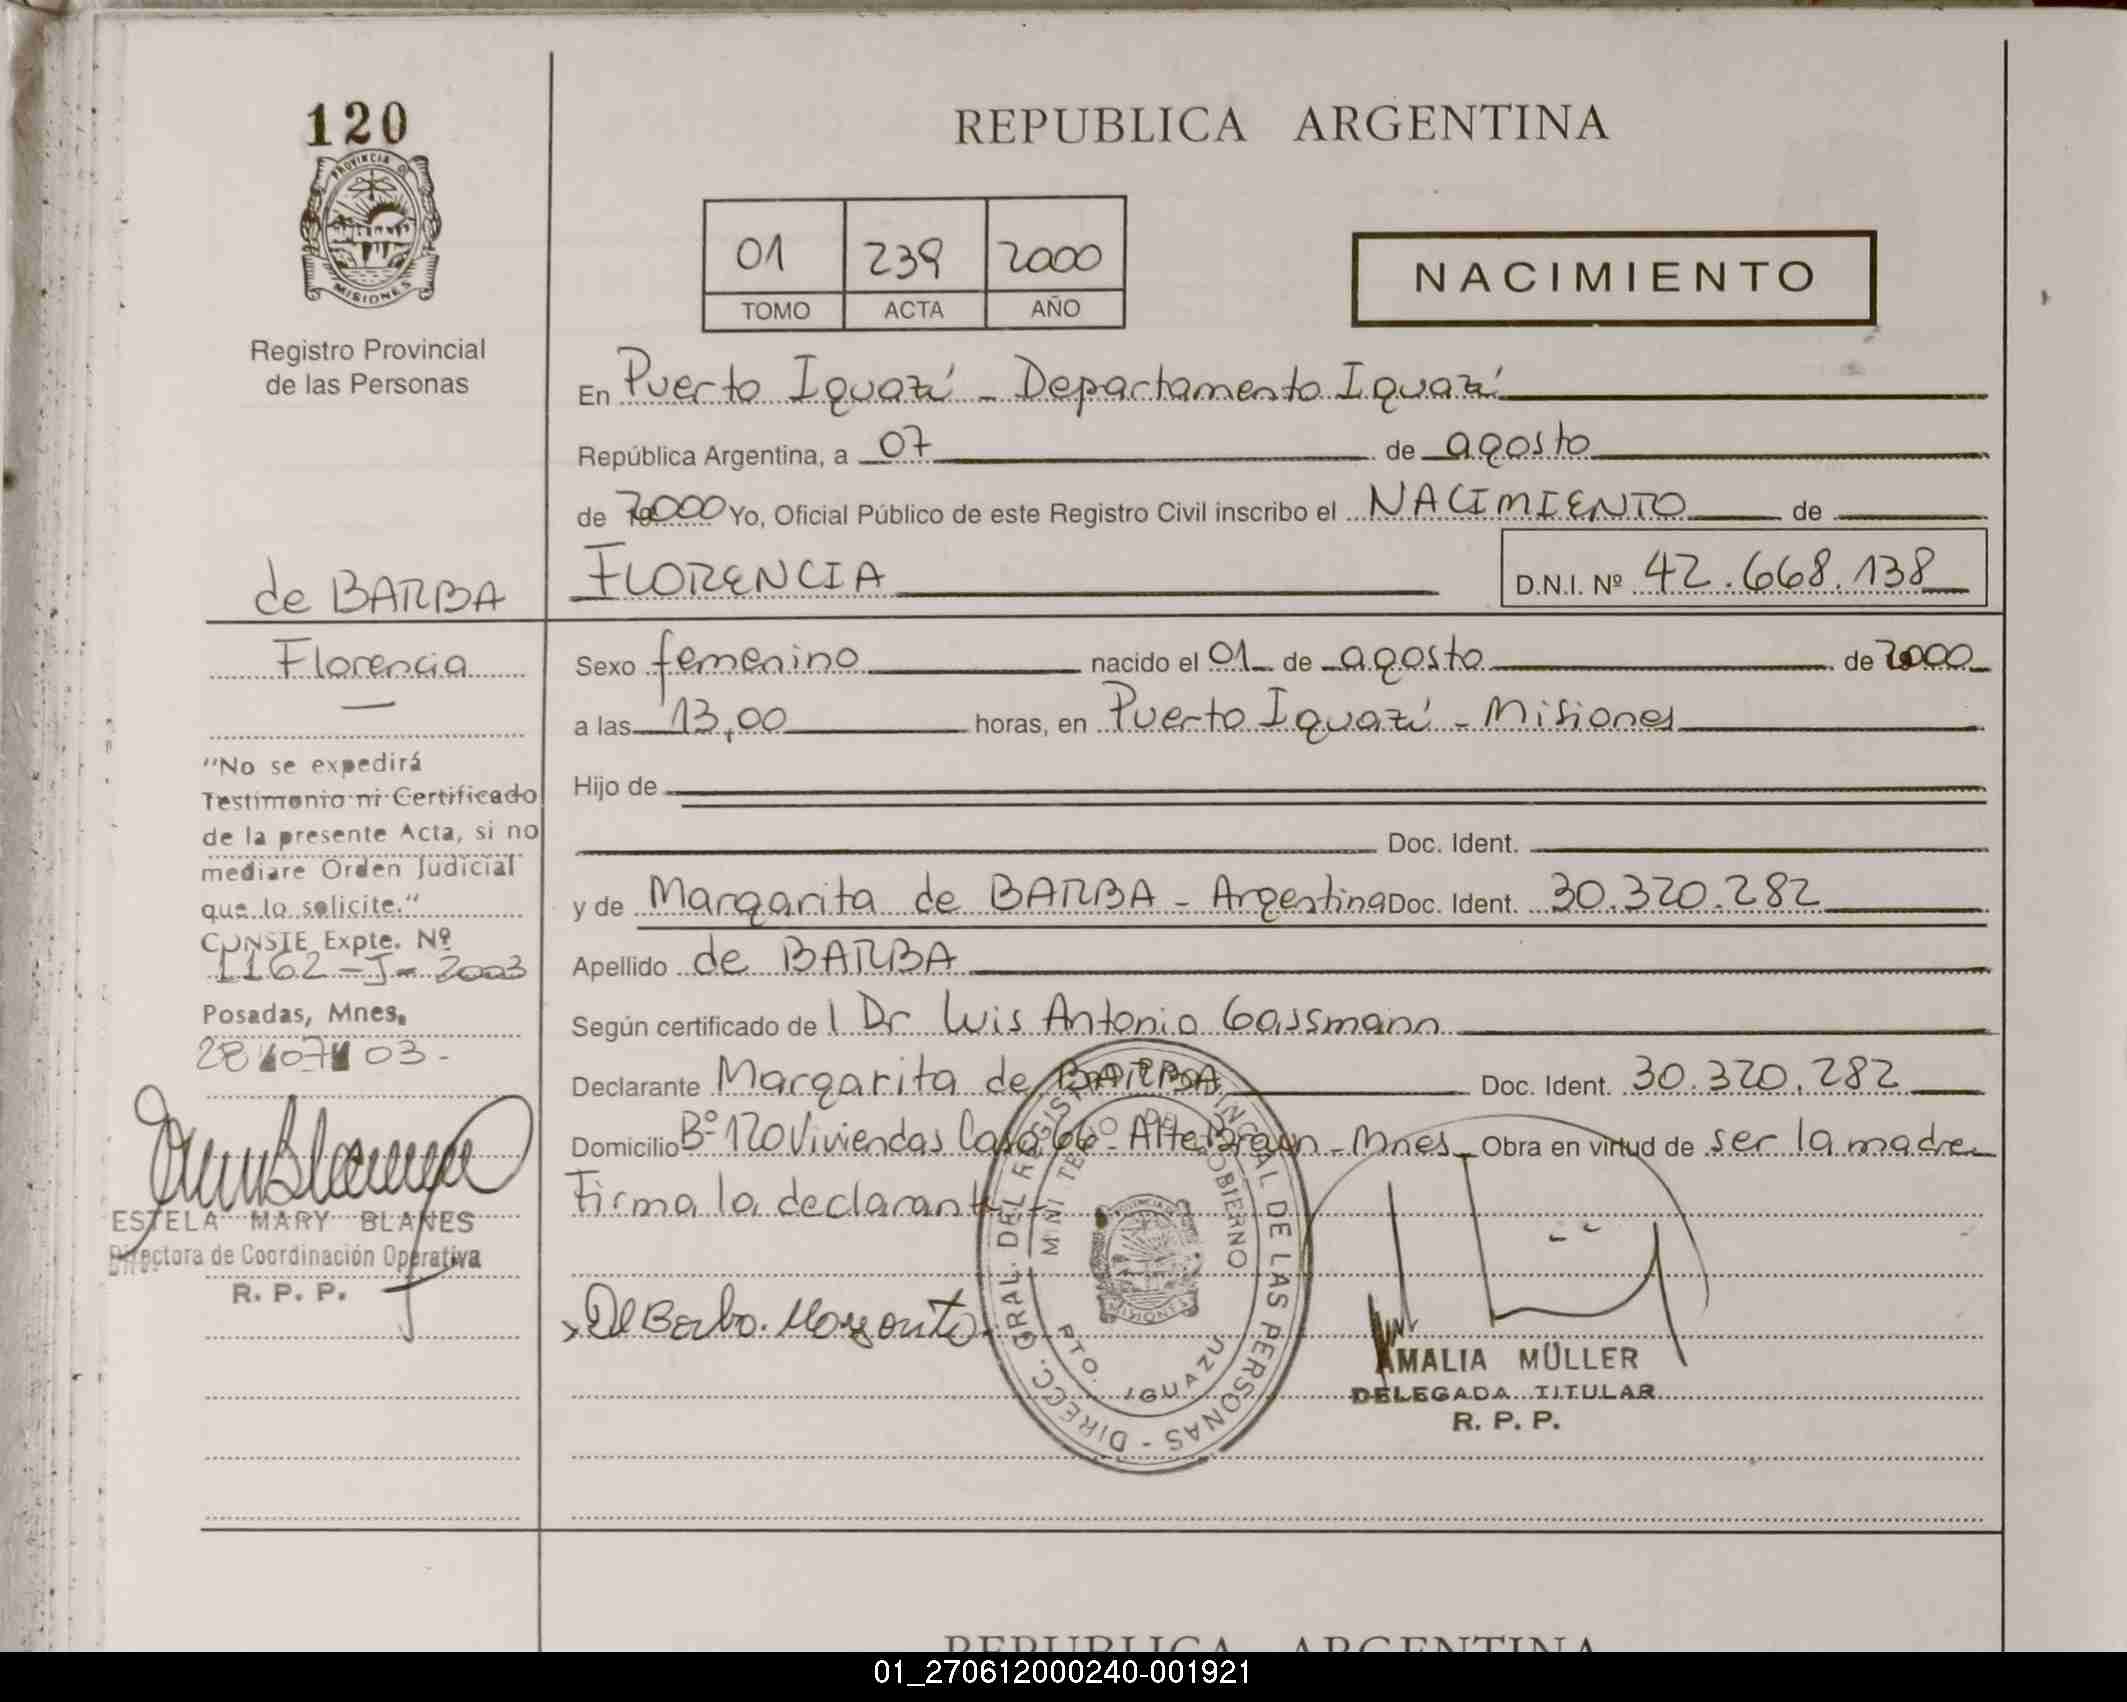 120
PROVINCIA
MISIONES
Registro Provincial
de las Personas
de BARBA
Florencia
"No se expedirá
Testimonio ni Certificado
de la presente Acta, si no
mediare Orden Judicial
que lo solicite."
CONSTE Expte. Nº
1162-J-2003
Posadas, Mnes.
28 07 03-
ESTELA MARY BLANES
Directora de Coordinación Operativa
R. P. P.
REPUBLICA ARGENTINA
01 239 2000
TOMO ACTA AÑO
NACIMIENTO
En Puerto Iguazú - Departamento Iguazú
República Argentina, a 07 de agosto
de 2000 Yo, Oficial Público de este Registro Civil inscribo el NACIMIENTO de
FLORENCIA D.N.I. Nº 42.668.138
Sexo femenino nacido el 01 de agosto de 2000
a las 13,00 horas, en Puerto Iguazú - Misiones
Hijo de
Doc. Ident.
y de Margarita de BARBA - Argentina Doc. Ident. 30.320.282
Apellido de BARBA
Según certificado de l Dr Luis Antonio Gassmann
Declarante Margarita de BARBA Doc. Ident. 30.320.282
Domicilio Bº 120 Viviendas Casa 66 - Alte Brown - Mnes Obra en virtud de ser la madre
Firma la declarante
De Barba Margarita
DIRECC. GRAL. DEL REGIST PROVINCIAL DE LAS PERSONAS -
MINISTERIO DE GOBIERNO
PTO. IGUAZU
AMALIA MÜLLER
DELEGADA TITULAR
R. P. P.
REPUBLICA ARGENTINA
01_270612000240-001921